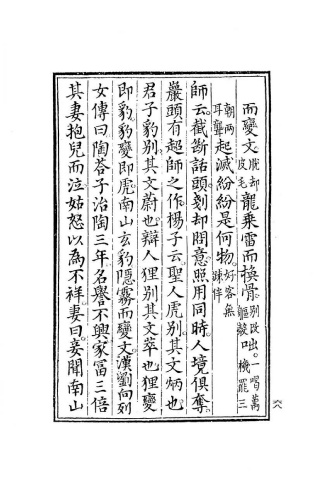 而變文脫却皮毛龍乘雷而換骨別改軀咄。一喝萬機罷三
朝兩耳聾起滅紛紛是何物。好客無踈伴
師云。截斷話頭。剗却閙意。照用同時。人境俱奪。
巖頭有超師之作。楊子云。聖人虎別。其文炳也。
君子豹別。其文蔚也。辯人狸別。其文萃也。狸變
即豹。豹變即虎。南山玄豹。隱霧而變文。漢劉向列
女傳曰。陶荅子治陶三年。名譽不興。家冨三倍。
其妻抱兒而泣。姑怒以為不祥。妻曰。妾聞南山
六八